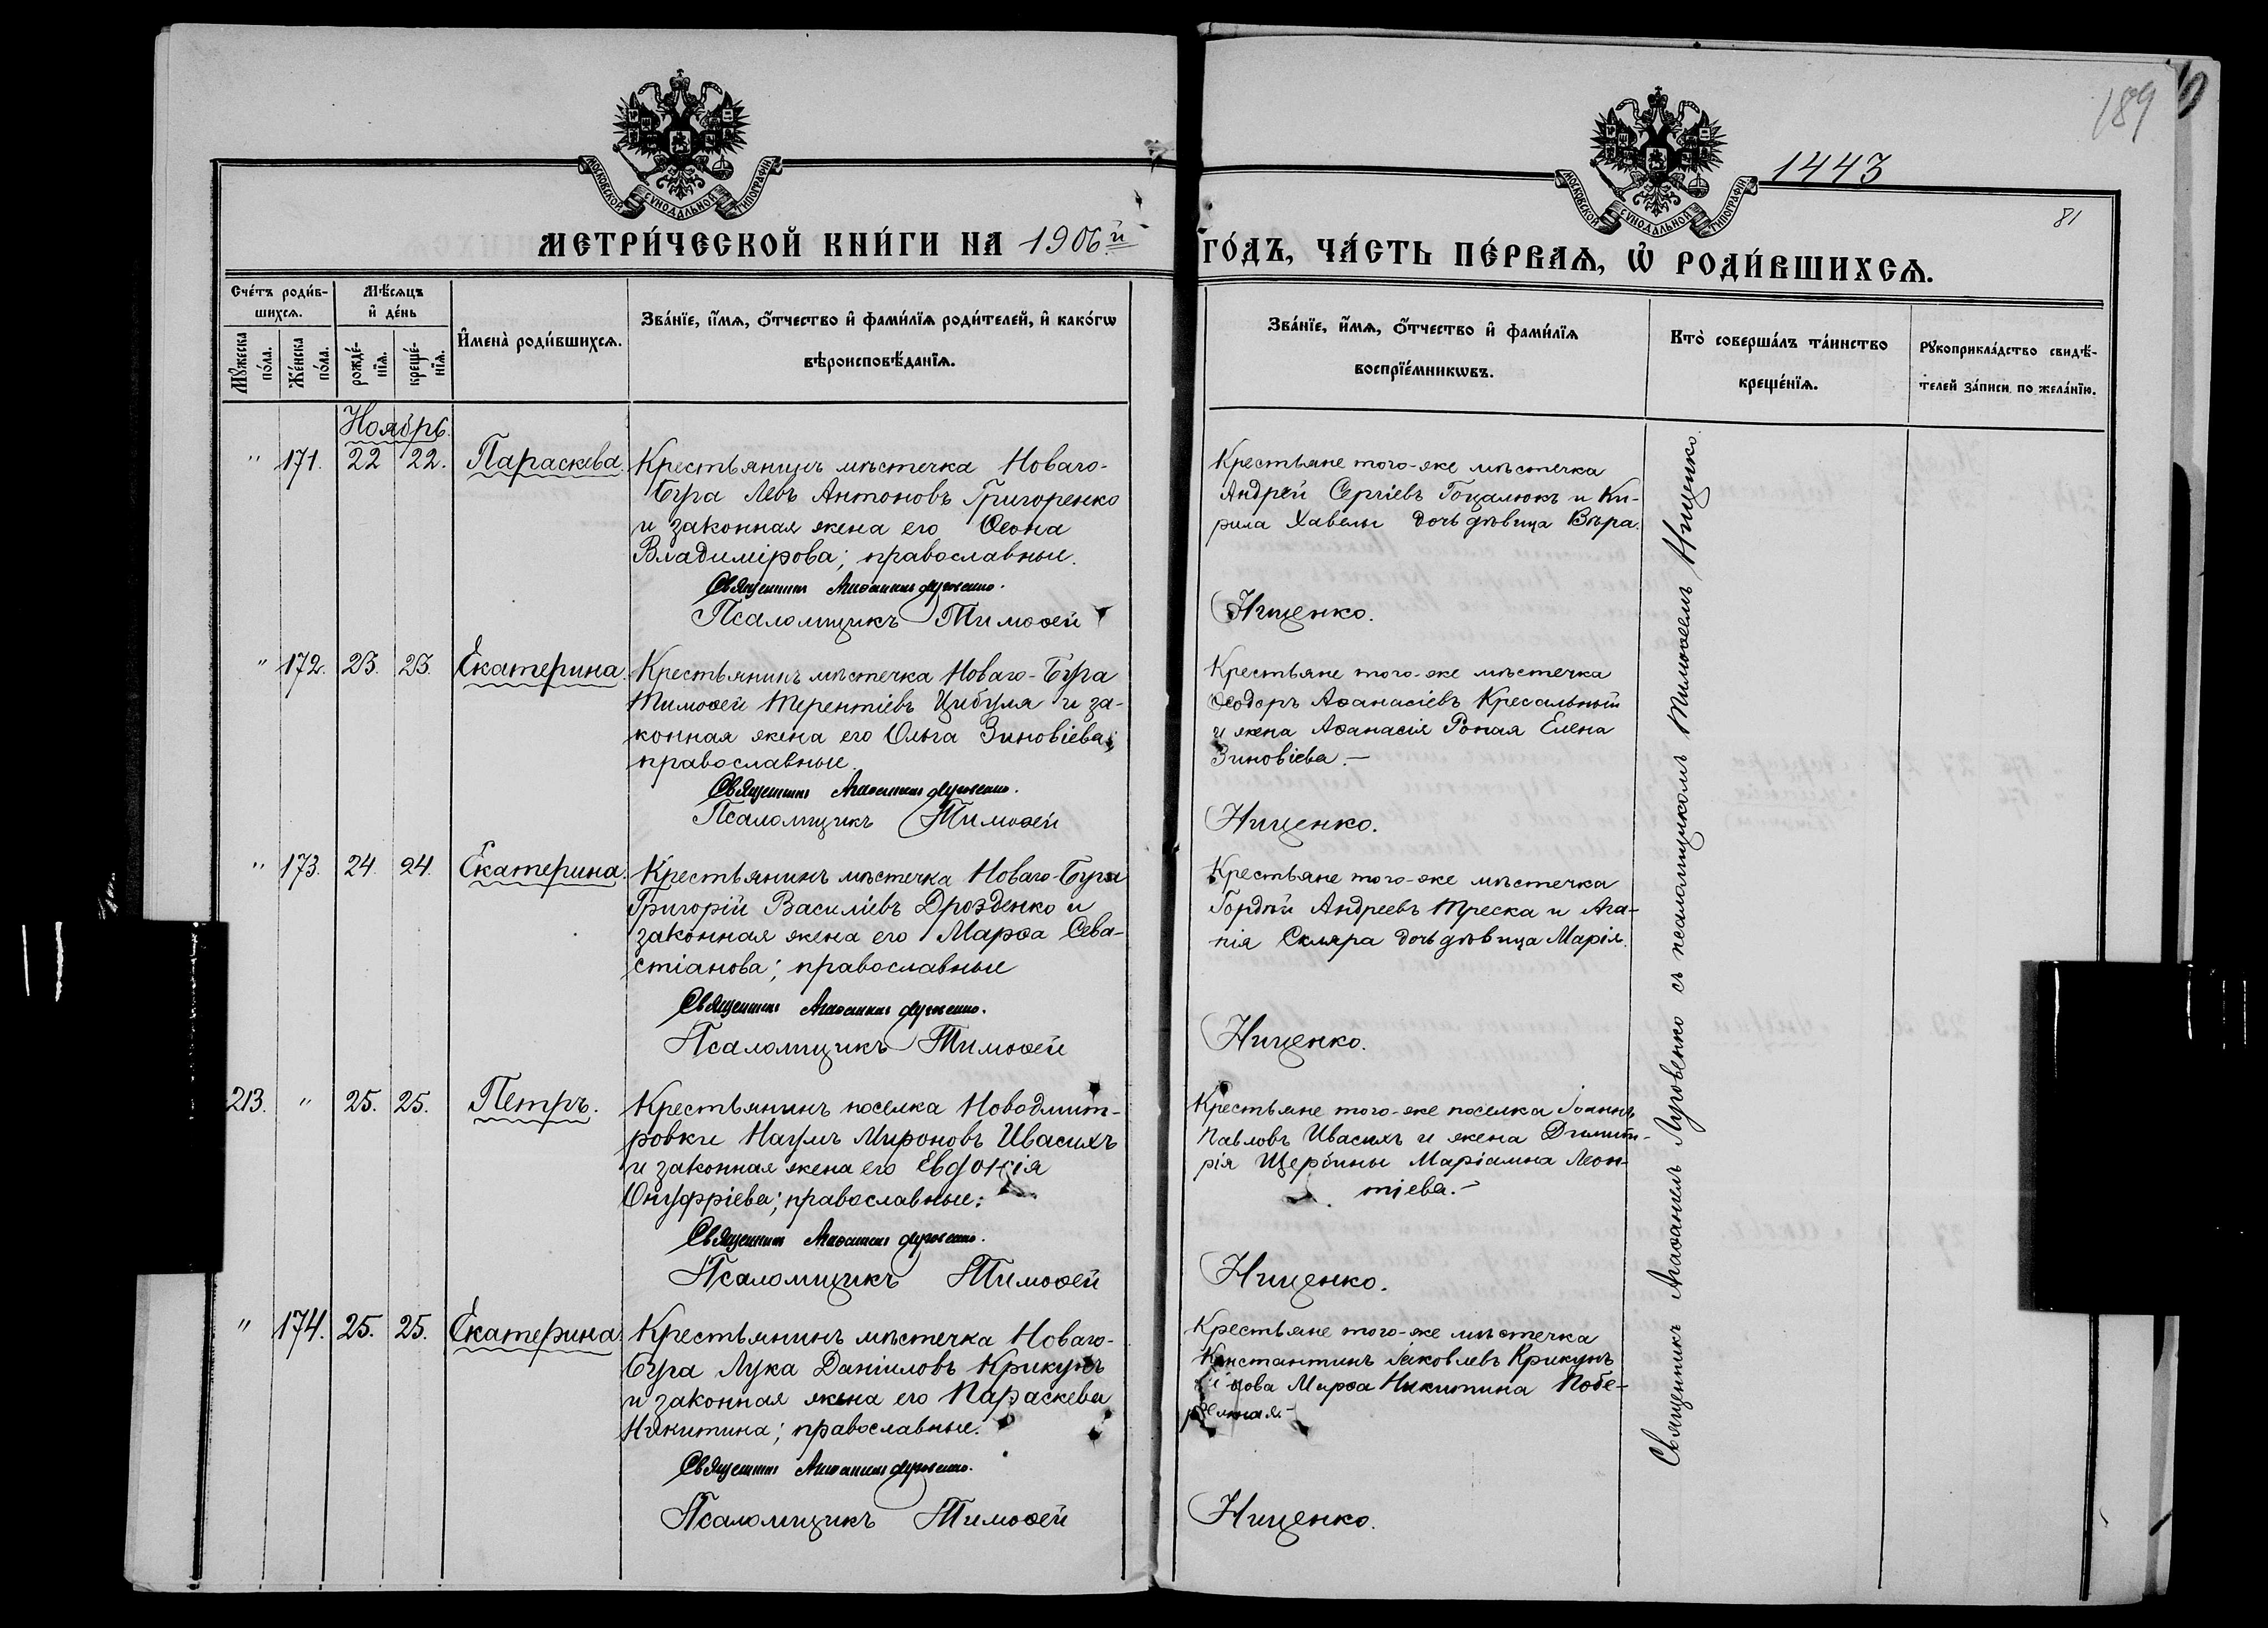 189
1443
81
МОСКОВСКОЙ СѴНОДАЛЬНОЙ ТИПОГРАФІИ
МОСКОВСКОЙ СѴНОДАЛЬНОЙ ТИПОГРАФІИ
МЕТРИ́ЧЕСКОЙ КНИ́ГИ НА 1906й
ГО́ДЪ, ЧА́СТЬ ПЕ́РВАѦ, Ѡ҆ РОДИ́ВШИХСѦ.
Сче́тъ роди́в-
шихсѧ.
Мꙋ́жеска по́ла.
Же́нска по́ла.
Мѣ́сѧцъ
и҆ де́нь
рожде́-
нїѧ.
креще́-
нїѧ.
И҆мена̀ роди́вшихсѧ.
Зва́нїе, и҆́мѧ, ѻ҆́тчество и҆ фами́лїѧ роди́телей, и҆ како́гѡ
вѣроисповѣ́данїѧ.
Зва́нїе, и҆́мѧ, ѻ҆́тчество и҆ фами́лїѧ
воспрїе́мникѡвъ.
Кто̀ соверша́лъ та́инство
креще́нїѧ.
Рꙋкоприкла́дство свидѣ́-
телей за́писи по жела́нїю.
Ноябрь.
" 171. 22 22. Параскева. Крестьянинъ мѣстечка Новаго-
Буга Левъ Антоновъ Григоренко
и законная жена его Ѳеона
Владимірова; православные.
Священникъ Агаѳангелъ Луговенко.
Псаломщикъ Тимоѳей
Крестьяне того-же мѣстечка
Андрей Сергіевъ Гоцалюкъ и Ки-
рила Хавелы дочь дѣвица Вѣра.
Нищенко.
" 172. 23. 23. Екатерина. Крестьянинъ мѣстечка Новаго-Буга
Тимоѳей Терентіевъ Цибуля и за-
конная жена его Ольга Зиновіева;
православные.
Священникъ Агаѳангелъ Луговенко.
Псаломщикъ Тимоѳей
Крестьяне того-же мѣстечка
Ѳеодоръ Аѳанасіевъ Кресальный
и жена Аѳанасія Роная Елена
Зиновіева.—
Нищенко.
" 173. 24. 24. Екатерина. Крестьянинъ мѣстечка Новаго-Буга
Григорій Василіевъ Дрозденко и
законная жена его Марѳа Сева-
стіанова; православные
Священникъ Агаѳангелъ Луговенко.
Псаломщикъ Тимоѳей
Крестьяне того-же мѣстечка
Гордѣй Андреевъ Треска и Ага-
пія Скляра дочь дѣвица Марія.
Нищенко.
213. " 25. 25. Петръ. Крестьянинъ поселка Новодмит-
ровки Наумъ Мироновъ Ивасихъ
и законная жена его Евдокія
Онуфріева; православные.
Священникъ Агаѳангелъ Луговенко.
Псаломщикъ Тимоѳей
Крестьяне того-же поселка Іоаннъ
Павловъ Ивасихъ и жена Димит-
рія Щербины Маріамна Леон-
тіева.—
Нищенко.
" 174. 25. 25. Екатерина. Крестьянинъ мѣстечка Новаго-
Буга Лука Даніиловъ Крикунъ
и законная жена его Параскева
Никитина; православные.
Священникъ Агаѳангелъ Луговенко.
Псаломщикъ Тимоѳей
Крестьяне того-же мѣстечка
Константинъ Іаковлевъ Крикунъ
и вдова Марѳа Никитина Побе-
Нищенко.
Священникъ Агаѳангелъ Луговенко съ псаломщикомъ Тимоѳеемъ Нищенко.